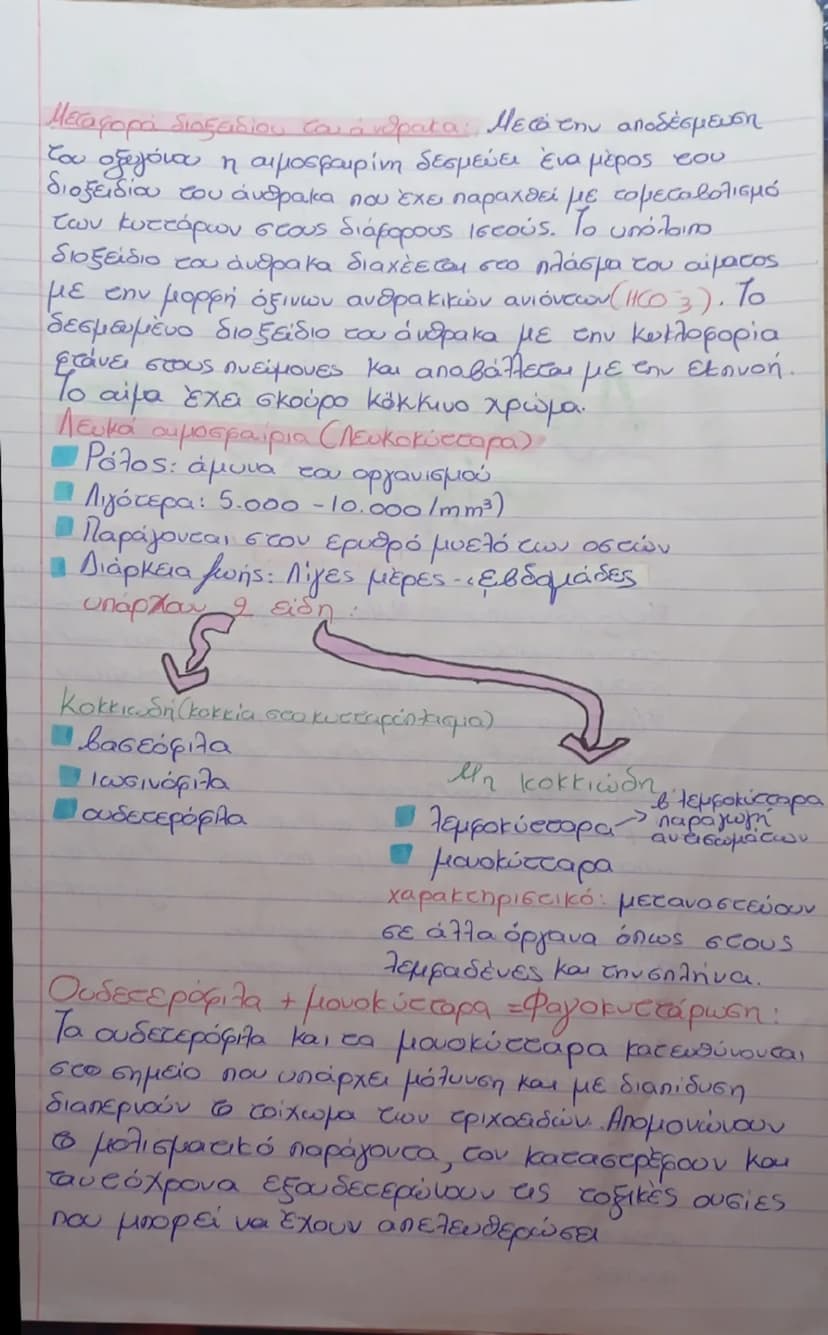 Μεταφορά διοξειδίου του άνθρακα: Μετά την αποδέσμευση
του οξυγόνου η αιμοσφαιρίνη δεσμεύει ένα μέρος του
διοξειδίου του άνθρακα που έχει παραχθεί με το μεταβολισμό
των κυττάρων στους διάφορους ιστούς. Το υπόλοιπο
διοξείδιο του άνθρακα διαχέεται στο πλάσμα του αίματος
με την μορφή όξινων ανθρακικών ανιόντων (HCO-3). Το
δεσμευμένο διοξείδιο του άνθρακα με την κυκλοφορία
φτάνει στους πνεύμονες και αποβάλλεται με την εκπνοή.
Το αίμα έχει σκούρο κόκκινο χρώμα.
Λευκά αιμοσφαίρια (Λευκοκύτταρα)
Ρόλος: άμυνα του οργανισμού
Λιγότερα: 5.000 - 10.000/mm³)
Παράγονται στον ερυθρό μυελό των οστών
Διάρκεια ζωής: Λίγες μέρες - εβδομάδες
υπάρχουν 2 είδη:
Κοκκιώδη (κοκκία στο κυτταρόπλασμα)
βασεόφιλα
Ιωσινόφιλα
ουδετερόφιλα
Μη κοκκιώδη
λεμφοκύτταρα → β λεμφοκύτταρα
παραγωγή
αντισωμάτων
μονοκύτταρα
χαρακτηριστικό: μεταναστεύουν
σε άλλα όργανα όπως στους
λεμφαδένες και την σπλήνα.
Ουδετερόφιλα + μονοκύτταρα = Φαγοκυττάρωση:
Τα ουδετερόφιλα και τα μονοκύτταρα κατευθύνονται
στο σημείο που υπάρχει μόλυνση και με διαπίδυση
διαπερνούν το τοίχωμα των τριχοειδών. Απομονώνουν
το μολισματικό παράγοντα, τον καταστρέφουν και
ταυτόχρονα εξουδετερώνουν τις τοξικές ουσίες
που μπορεί να έχουν απελευθερώσει